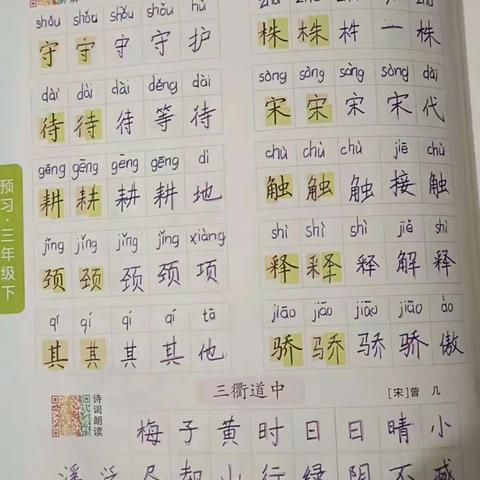 shǒu shǒu shǒu shǒu hù
守 守 守 守 护
株 株 株 一 株
dài dài dài děng dài
待 待 待 等 待
sòng sòng sòng sòng dài
宋 宋 宋 宋 代
gēng gēng gēng gēng dì
耕 耕 耕 耕 地
chù chù chù jiē chù
触 触 触 接 触
jǐng jǐng jǐng jǐng xiàng
颈 颈 颈 颈 项
shì shì shì jiě shì
释 释 释 解 释
qí qí qí qí tā
其 其 其 其 他
jiāo jiāo jiāo jiāo ào
骄 骄 骄 骄 傲
预习·三年级下
诗词朗读
三衢道中
[宋]曾 几
梅 子 黄 时 日 日 晴 小
溪 泛 尽 却 山 行 绿 阴 不 减